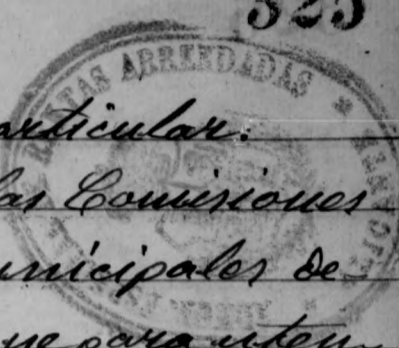 323
RENTAS ARRENDADAS
articular.
las Comisiones
unicipales de
que para aten